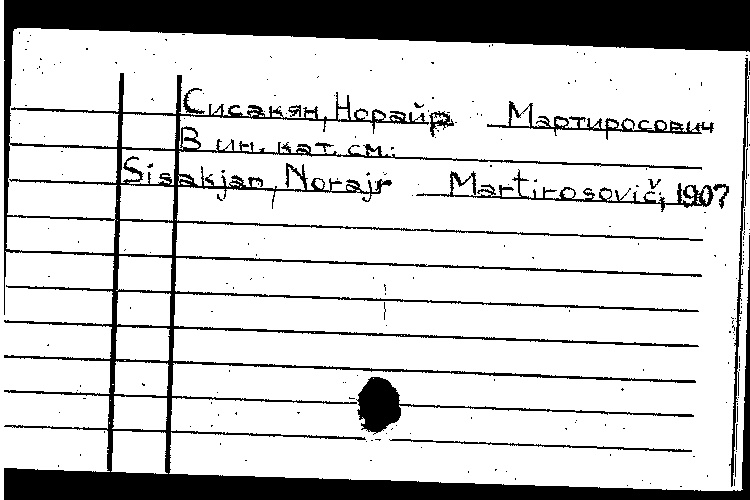 Сисакян, Норайр Мартиросович
В ин. кат. см.:
Sisakjan, Norajr Martirosovič, 1907